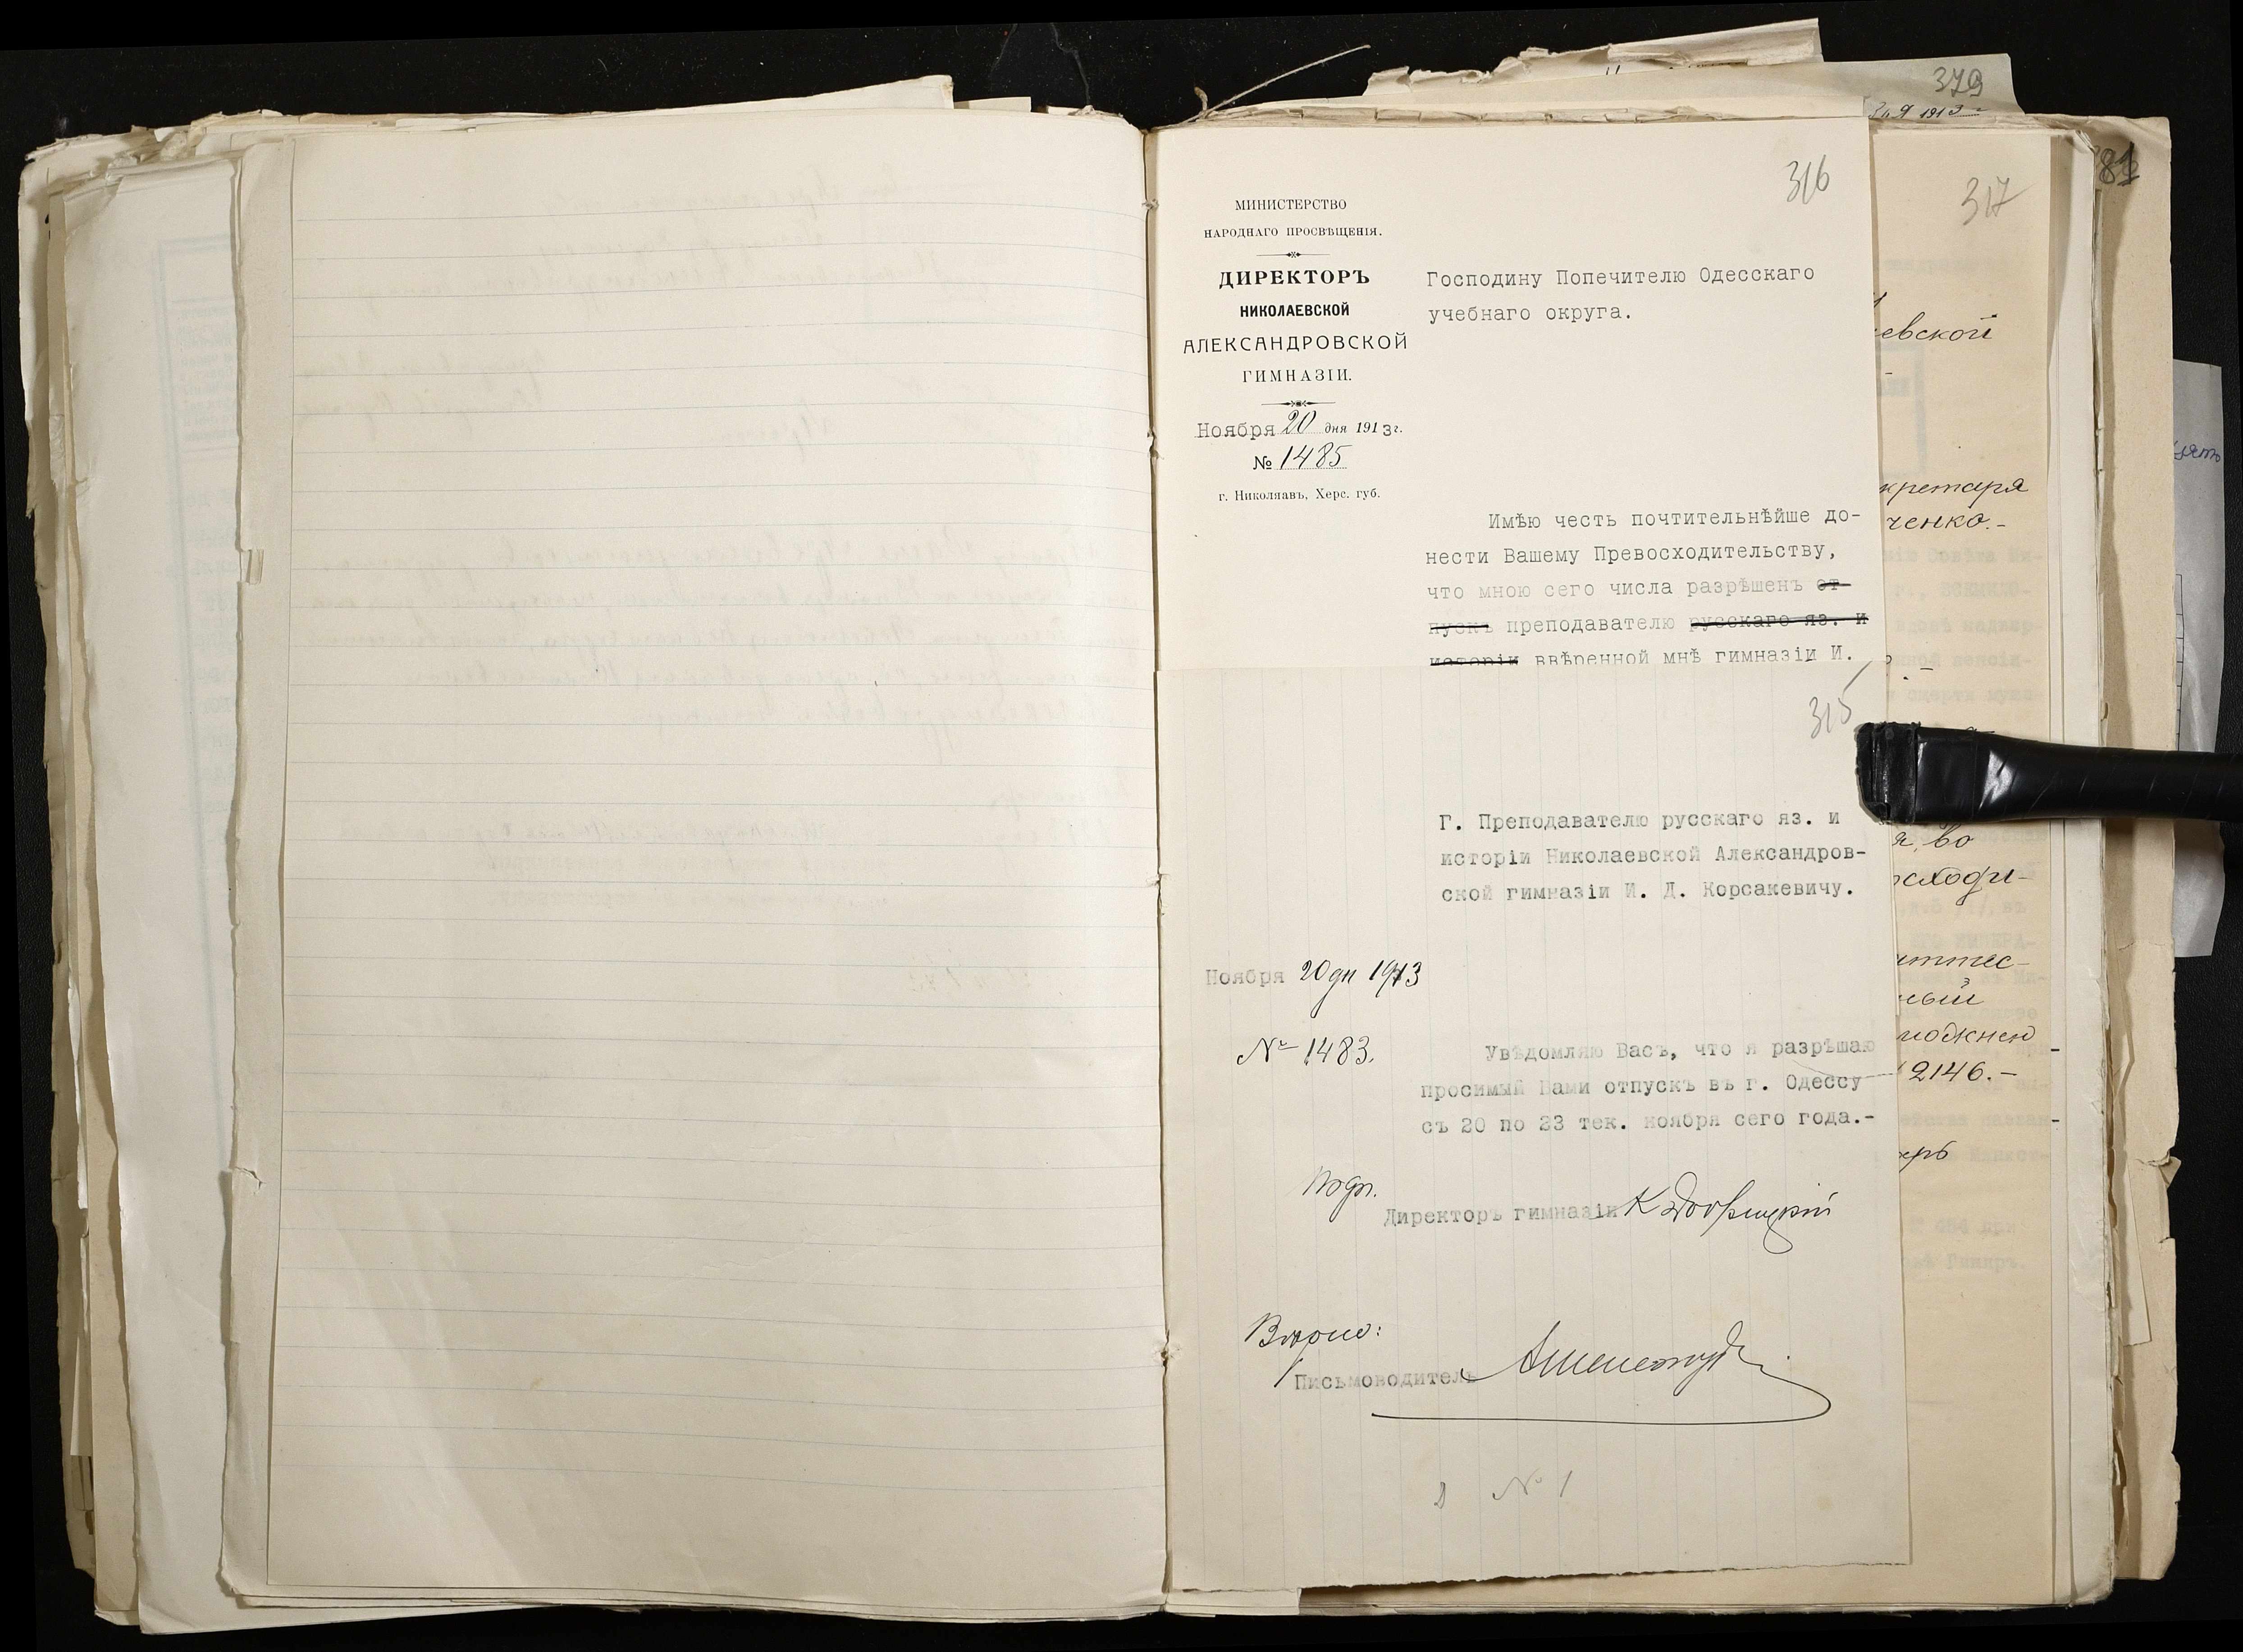 379
381
317
316
МИНИСТЕРСТВО
НАРОДНАГО ПРОСВѢЩЕНІЯ.
ДИРЕКТОРЪ
НИКОЛАЕВСКОЙ
АЛЕКСАНДРОВСКОЙ
ГИМНАЗІИ.
Ноября 20 дня 1913 г.
№ 1485
г. Николяавъ, Херс. губ.
Господину Попечителю Одесскаго
учебнаго округа.
Имѣю честь почтительнѣйше до-
нести Вашему Превосходительству,
что мною сего числа разрѣшенъ от-
пускъ преподавателю русскаго яз. и
исторіи ввѣренной мнѣ гимназіи И.
315
Г. Преподавателю русскаго яз. и
исторіи Николаевской Александров-
ской гимназіи И. Д. Корсакевичу.
Ноября 20 дн 1913
№ 1483.
Увѣдомляю Васъ, что я разрѣшаю
просимый Вами отпускъ въ г. Одессу
съ 20 по 23 тек. ноября сего года.-
Подп.
Директоръ гимназіи К
Вѣрно:
Письмоводитель
№ 1
евской
кретаря
ченко.-
я, во
сходи-
ный
2146.-